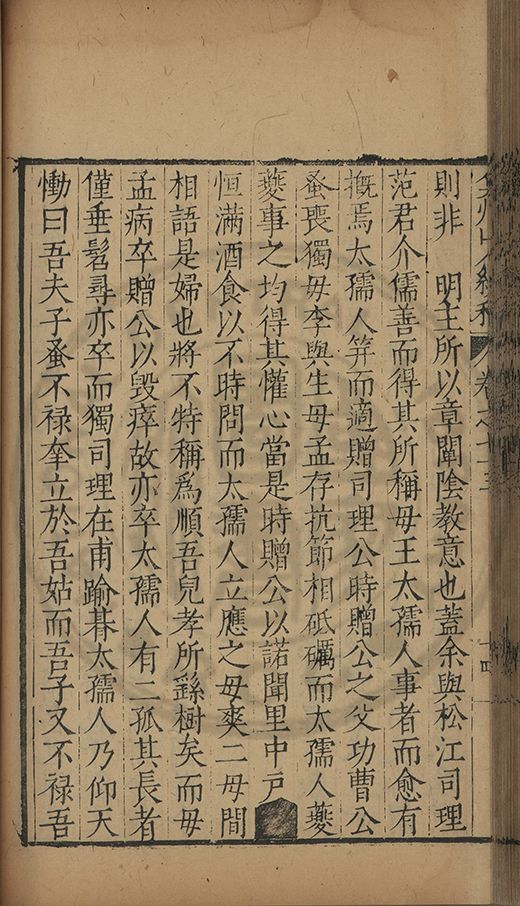 弇州山人續稿 卷之七十三 十四
則非 明主所以章闡陰教意也蓋余與松江司理
范君介儒善而得其所稱母王太孺人事者而愈有
概焉太孺人笄而適贈司理公時贈公之父功曹公
蚤喪獨母李與生母孟存抗節相砥礪而太孺人䕫
䕫事之均得其懽心當是時贈公以諾聞里中戸
恒滿酒食以不時問而太孺人立應之毋爽二母間
相語是婦也將不特稱為順吾兒孝所繇樹矣而母
孟病卒贈公以毀瘁故亦卒太孺人有二孤其長者
僅垂髫尋亦卒而獨司理在甫踰朞太孺人乃仰天
慟曰吾夫子蚤不祿奉立於吾姑而吾子又不祿吾